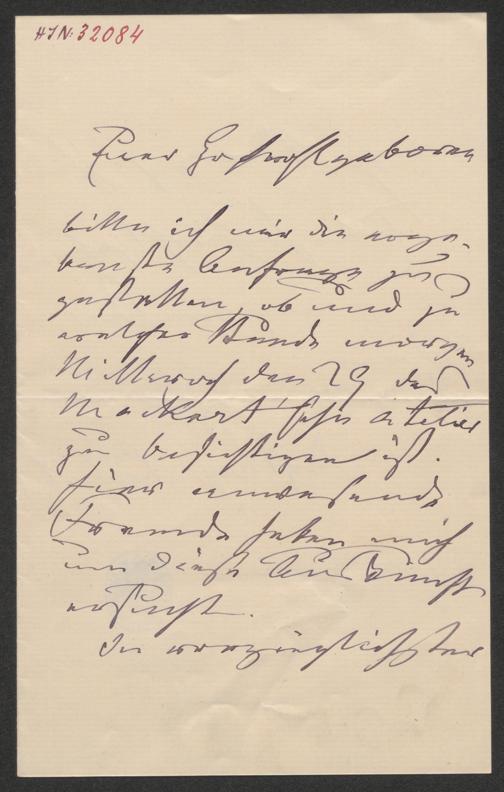 HJN: 32084
Euer Hochwohlgeboren
bitte ich mir die erge-
benste Anfrage zu
gestatten, ob und zu
welcher Stunde morgen
Mittwoch den 29 das
Mackart'sche Atelier
zu besichtigen ist.
Hier anwesende
Fremde haben mich
um diese Auskunft
ersucht.
In vorzüglichster